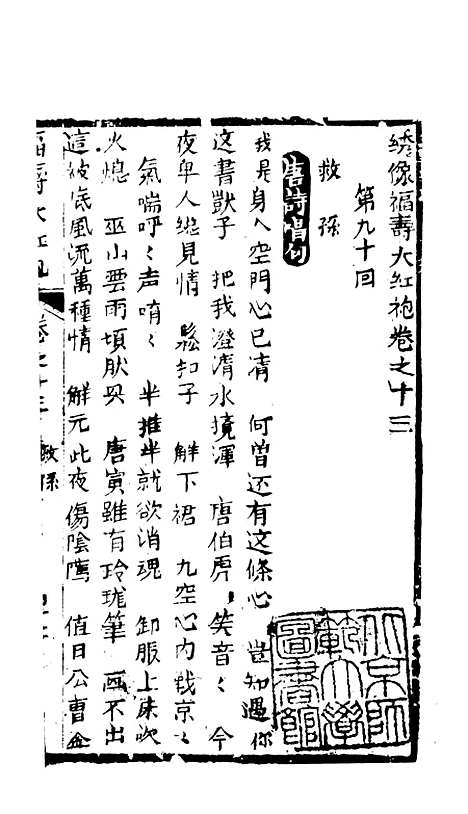 绣像福壽大紅袍卷之十三
第九十回
救孫
唐詩唱句
我是身入空門心已清 何曽还有这條心 豈知遇你
这書獃子 把我澄清水搅渾 唐伯虎ヽ笑音ヽ 今
夜卑人總見情 鬆扣子 觧下裙 九空心内戰京ヽ
氣喘呼ヽ声唷ヽ 半推半就欲消魂 卸服上床吹
火熄 巫山雲雨頃肰 唐寅雖有玲珑筆 画不出
這被底風流萬種情 觧元此夜傷陰隲 值日公曹
福壽大紅袍 卷之十三 救孫
北京師範大學圖書館